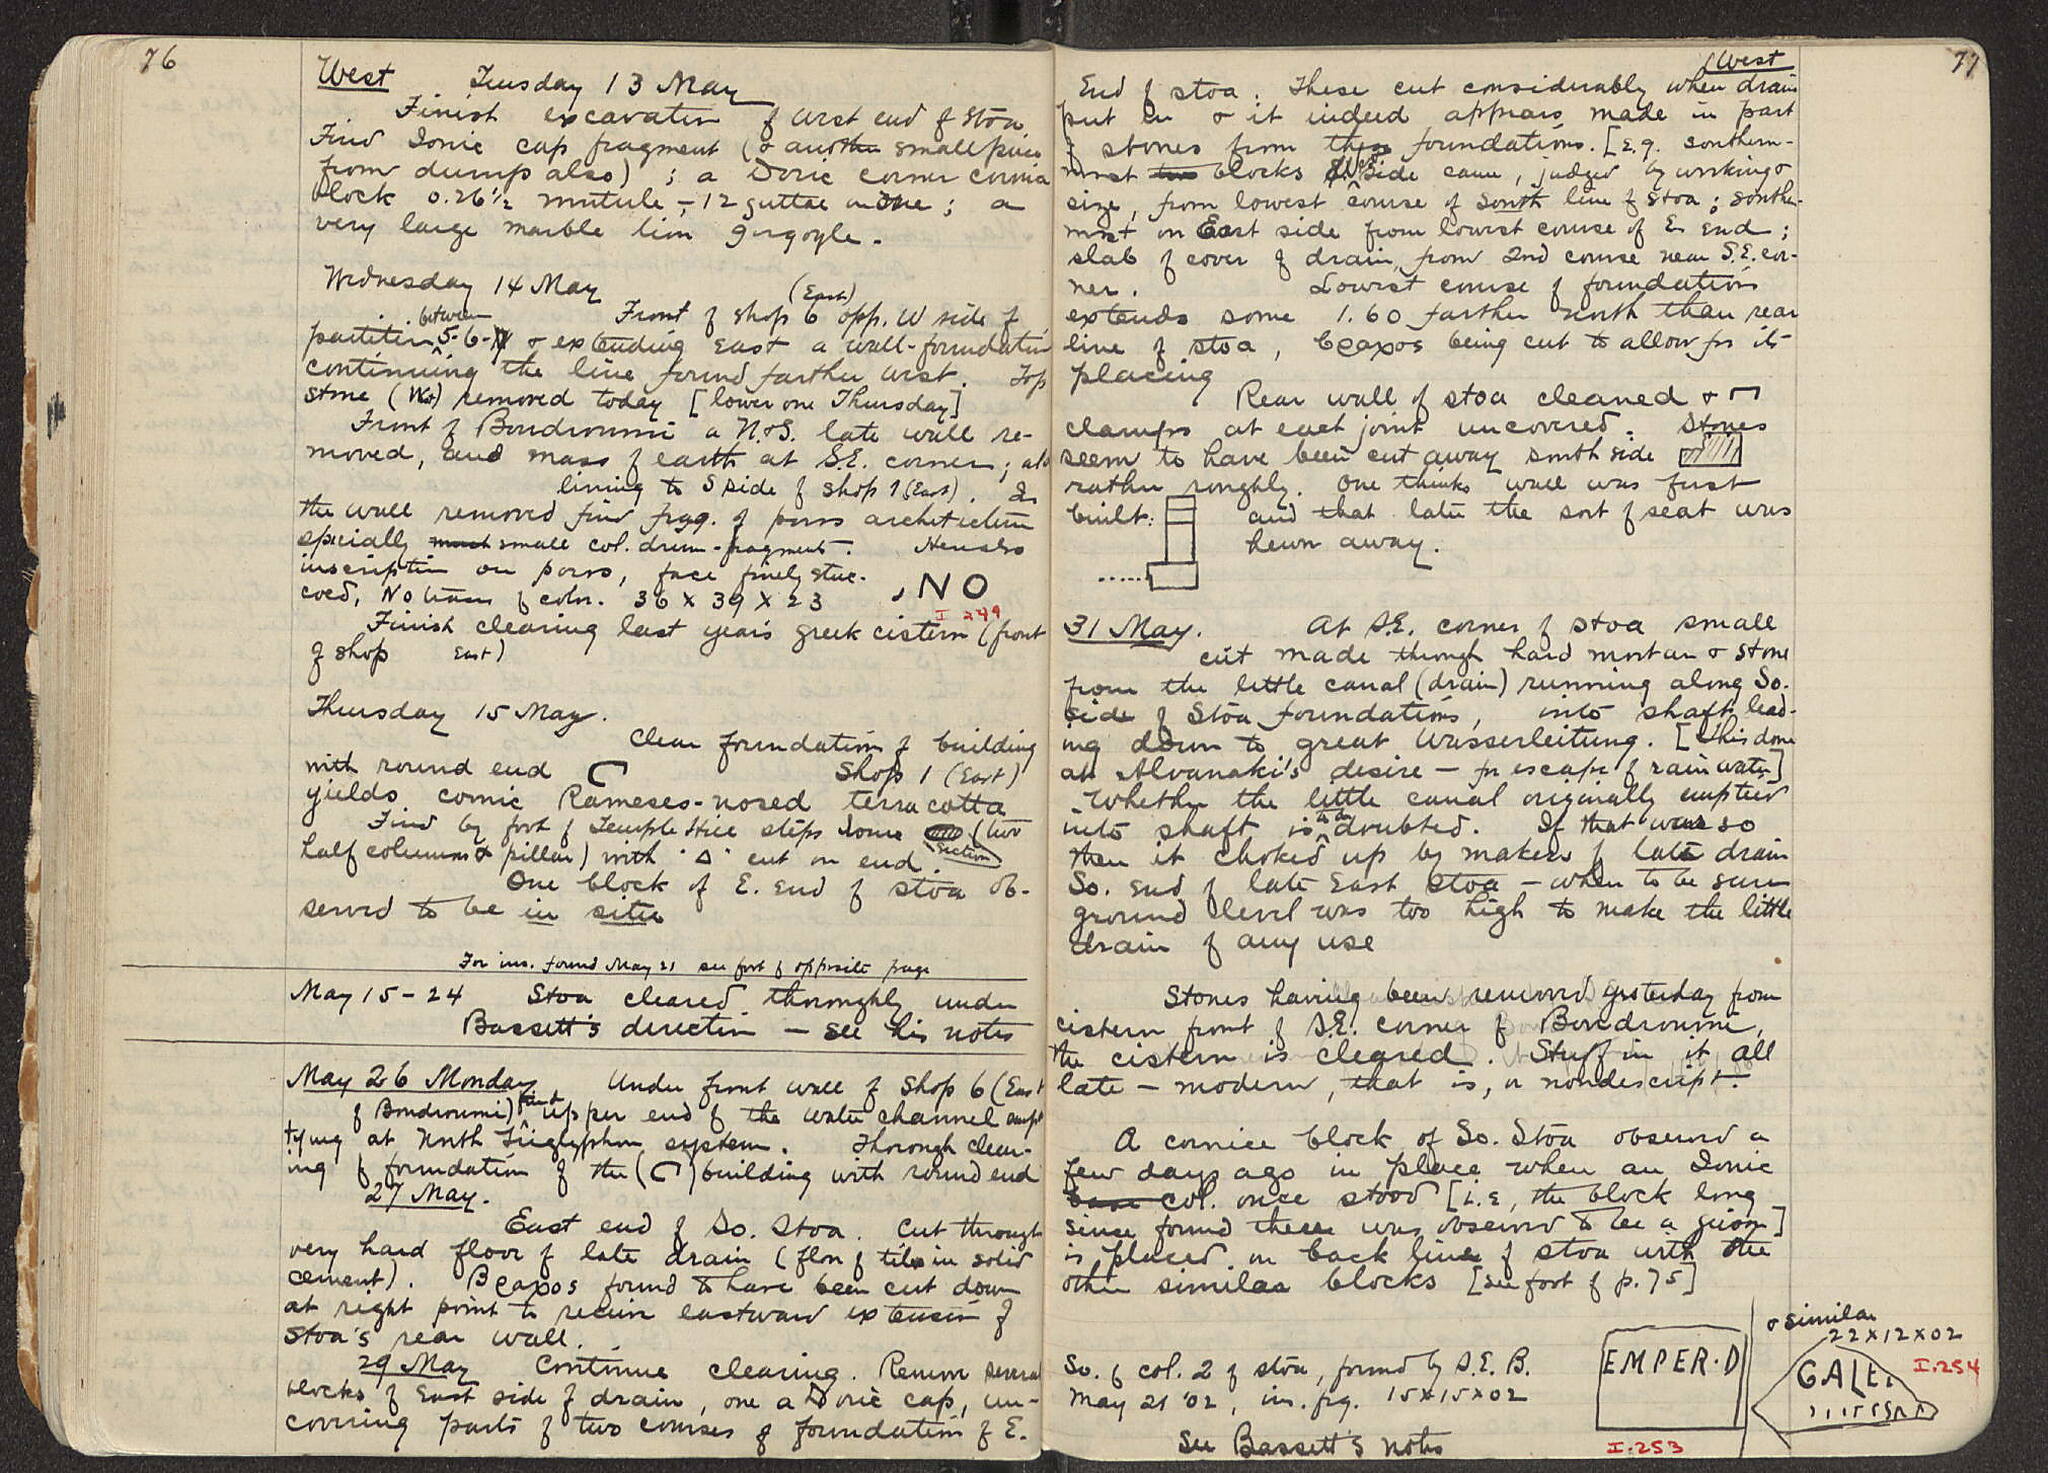 76
West Tuesday 13 May
Finish excavation of west end of Stoa
Find Ionic cap fragment (& another small piece
from dump also) ; a Doric corner cornice
block 0.26½ mutule – 12 guttae in one ; a
very large marble lion gargoyle.
Wednesday 14 May
(East)
Front of shop 6 opp. W side of
between
partition 5-6- & extending East a wall-foundation
continuing the line found farther west. Top
stone (W) removed today [lower one Thursday]
Front of Boudroumi a N&S. late wall re-
moved, and mass of earth at S.E. corner ; also
lining to S side of shop 1 (East). In
the wall removed find frgg. of poros architecture
specially small col. drum-fragments. Also
inscription on poros, face finely stuc-
coed, No traces of color. 36 x 39 x 23 NO
I 249
Finish clearing last year's greek cistern (front
of shop East)
Thursday 15 May.
Clear foundation of building
with round end Shop 1 (East)
yields comic Rameses-nosed terracotta
Find by foot of Temple Hill steps some (two
section
half columns & pillar) with "Δ" cut on end.
One block of E. end of stoa ob-
served to be in situ
For ins. found May 21 see foot of opposite page
May 15 – 24 Stoa cleared thoroughly under
Bassett's direction – see his notes
May 26 Monday Under front wall of Shop 6 (East
of Boudroumi) find upper end of the water channel emp-
tying at North Triglyphon system. Thorough clear-
ing of foundation of the ( ) building with round end
27 May.
East end of So. Stoa. Cut through
very hard floor of late drain (floor of tiles in solid
cement). Βράχος found to have been cut down
at right point to receive eastward extension of
Stoa's rear wall.
29 May Continue clearing. Remove several
blocks of East side of drain, one a Doric cap, un-
covering parts of two courses of foundation of E.
West
77
End of stoa. These cut considerably when drain
put in & it indeed appears made in part
of stones from these foundations. [E.g. southern-
most blocks W. side came, judged by working &
size, from lowest course of south line of stoa ; southern-
most on East side from lowest course of E end ;
slab of cover of drain, from 2nd course near S.E. cor-
ner. Lowest course of foundations
extends some 1.60 farther north than rear
line of stoa, βράχος being cut to allow for its
placing
Rear wall of stoa cleaned &
clamps at each joint uncovered. Stones
seem to have been cut away south side
rather roughly. One thinks wall was first
built: and that later the sort of seat was
hewn away.
31 May. At S.E. corner of stoa small
cut made through hard mortar & stone
from the little canal (drain) running along So.
side of Stoa foundations, into shaft lead-
ing down to great Wasserleitung. [This done
at Alvanaki's desire – for escape of rain water]
Whether the little canal originally emptied
into shaft is doubted. If that was so
then it choked up by makers of late drain
So. end of late East stoa – when to be sure
ground level was too high to make the little
drain of any use
Stones having been removed yesterday from
cistern front of S.E. corner of Boudroumi,
the cistern is cleared. Stuff in it all
late – modern, that is, or nondescript.
A cornice block of So. Stoa observed a
few days ago in place when an Ionic
col. once stood [i.e, the block long
since found there was observed to be a geison]
is placed on back line of stoa with the
other similar blocks [see foot of p. 75]
So. of col. 2 of stoa, found by S.E.B.
May 21 '02, ins. frg. 15x15x02
See Bassett's notes
EMPER·D
I·253
& similar
22 x 12 x 02
GALE
I·254